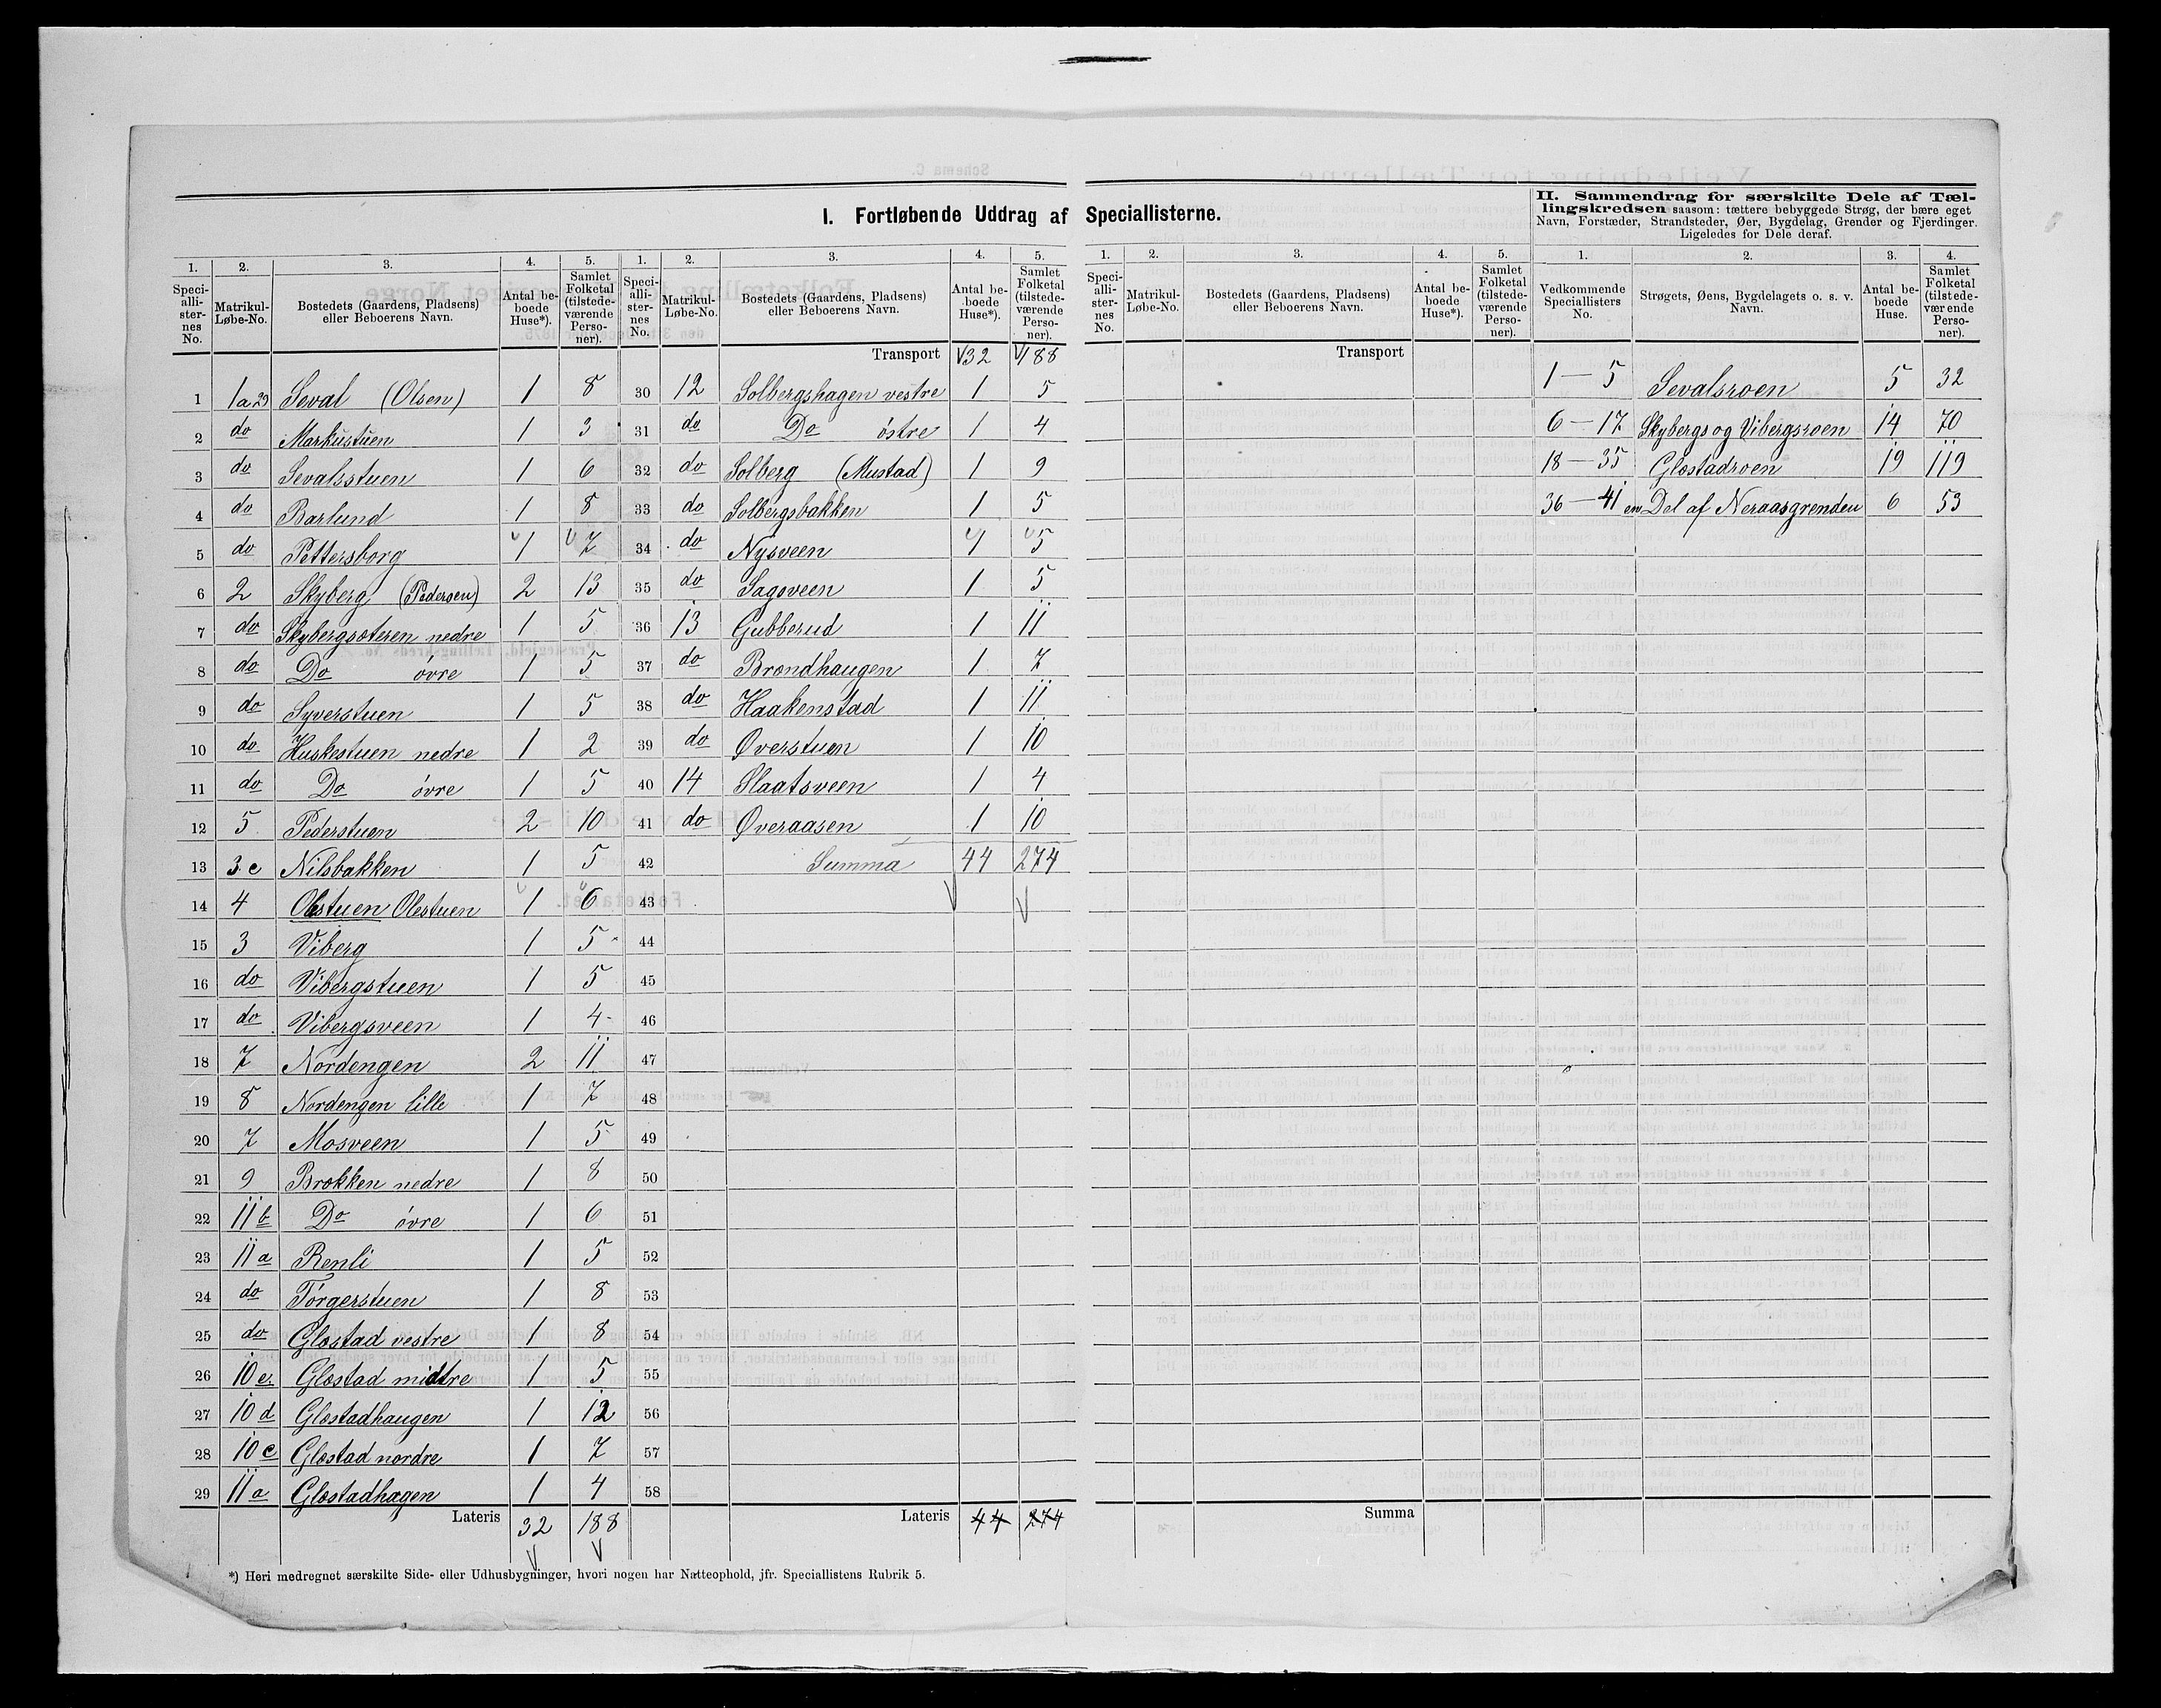 I. Fortløbende Uddrag af Speciallisterne.
1. 2. 3. 4. 5.
Speciallisternes No. Matrikul-Løbe-No. Bostedets (Gaardens, Pladsens) eller Beboerens Navn. Antal beboede Huse*). Samlet Folketal (tilstedeværende Personer).
1 1a29 Seval (Olsen) 1 8
2 do Markustuen 1 3
3 do Sevalsstuen 1 6
4 do Barlund 1 8
5 do Pettersborg 1 7
6 2 Skyberg (Pedersen) 2 13
7 do Skybergsæteren nedre 1 5
8 do Do øvre 1 5
9 do Syverstuen 1 5
10 do Huskestuen nedre 1 2
11 do Do øvre 1 5
12 5 Pederstuen 2 10
13 3c Nilsbakken 1 5
14 4 Olestuen Olestuen 1 6
15 3 Viberg 1 5
16 do Vibergstuen 1 5
17 do Vibergsveen 1 4
18 7 Nordengen 2 11
19 8 Nordengen lille 1 7
20 7 Mosveen 1 5
21 9 Brokken nedre 1 8
22 11b Do øvre 1 6
23 11a Renli 1 5
24 do Torgerstuen 1 8
25 do Glæstad vestre 1 8
26 10e Glæstad midtre 1 5
27 10d Glæstadhaugen 1 12
28 10c Glæstad nordre 1 7
29 11a Glæstadhagen 1 4
Lateris 32 188
1. 2. 3. 4. 5.
Speciallisternes No. Matrikul-Løbe-No. Bostedets (Gaardens, Pladsens) eller Beboerens Navn. Antal beboede Huse*). Samlet Folketal (tilstedeværende Personer).
Transport 32 188
30 12 Solbergshagen vestre 1 5
31 do Do østre 1 4
32 do Solberg (Mustad) 1 9
33 do Solbergsbakken 1 5
34 do Nysveen 1 5
35 do Sagsveen 1 5
36 13 Gubberud 1 11
37 do Brændhaugen 1 7
38 do Haakenstad 1 11
39 do Øverstuen 1 10
40 14 Slaatsveen 1 4
41 do Øveraasen 1 10
42 Summa 44 274
43
44
45
46
47
48
49
50
51
52
53
54
55
56
57
58
Lateris 44 274
*) Heri medregnet særskilte Side- eller Udhusbygninger, hvori nogen har Natteophold, jfr. Speciallistens Rubrik 5.
1. 2. 3. 4. 5.
Speciallisternes No. Matrikul-Løbe-No. Bostedets (Gaardens, Pladsens) eller Beboerens Navn. Antal beboede Huse*). Samlet Folketal (tilstedeværende Personer).
Transport
Summa
II. Sammendrag for særskilte Dele af Tæl-
lingskredsen saasom: tættere bebyggede Strøg, der bære eget
Navn, Forstæder, Strandsteder, Øer, Bygdelag, Grender og Fjerdinger.
Ligeledes for Dele deraf.
1. 2. 3. 4.
Vedkommende Speciallisters No. Strøgets, Øens, Bygdelagets o. s. v. Navn. Antal beboede Huse. Samlet Folketal (tilstedeværende Personer).
1 — 5 Sevalsroen 5 32
6 — 17 Skybergs og Vibergsroen 14 70
18 — 35 Glæstadroen 19 119
36 — 41 en Del af Neraasgrenden 6 53